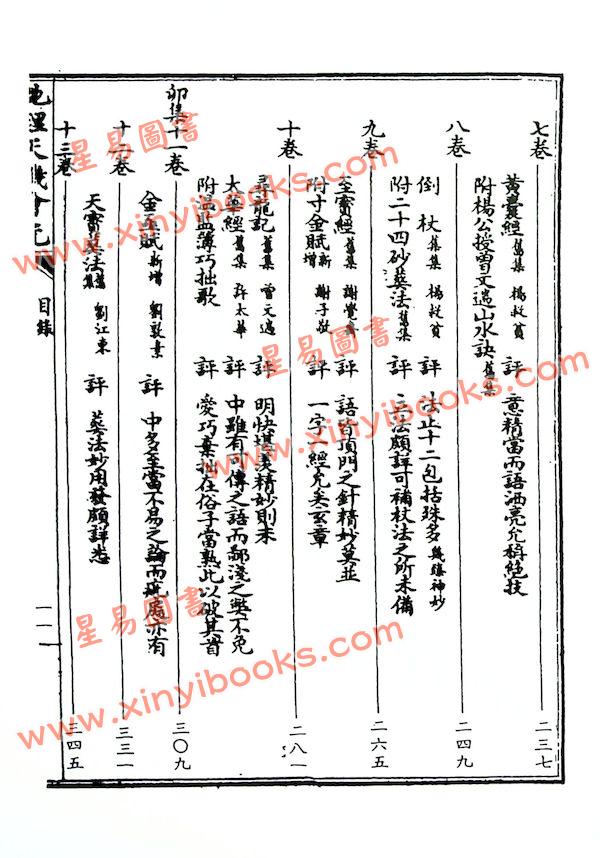 七卷
二三七
黃囊經 舊集 楊救貧 評 意精當而語洒亮允稱絕技
附楊公授曾文遄山水訣 舊集
八卷
二四九
倒杖 舊集 楊救貧 評 法止十二包括殊多幾臻神妙
附二十四砂葬法 舊集 評 立法頗詳可補杖法之所未備
九卷
二六五
至寶經 舊集 謝覺齋 評 語皆頂門之針精妙莫並
附寸金賦 新增 謝子 評 一字一經允矣玄章
十卷
二八一
尋龍記 舊集 曾文遄 評 明快堪美精妙則未
太華經 舊集 許太華 評 中雖有可傳之語而鄙淺之弊不免
附溫監簿巧拙歌 評 愛巧棄拙在俗子當熟此以破其盲
卯集十一卷
三〇九
金匱賦 新增 劉敦素 評 中多至當不易之論而疵處亦有
十二卷
三三一
天寶葬法 舊集 劉江東 評 葬法妙用發頗詳悉
十三卷
三四五
地理天機會元
目錄
一一
星易圖書
www.xinyibooks.com
星易圖書
www.xinyibooks.com
星易圖書
www.xinyibooks.com